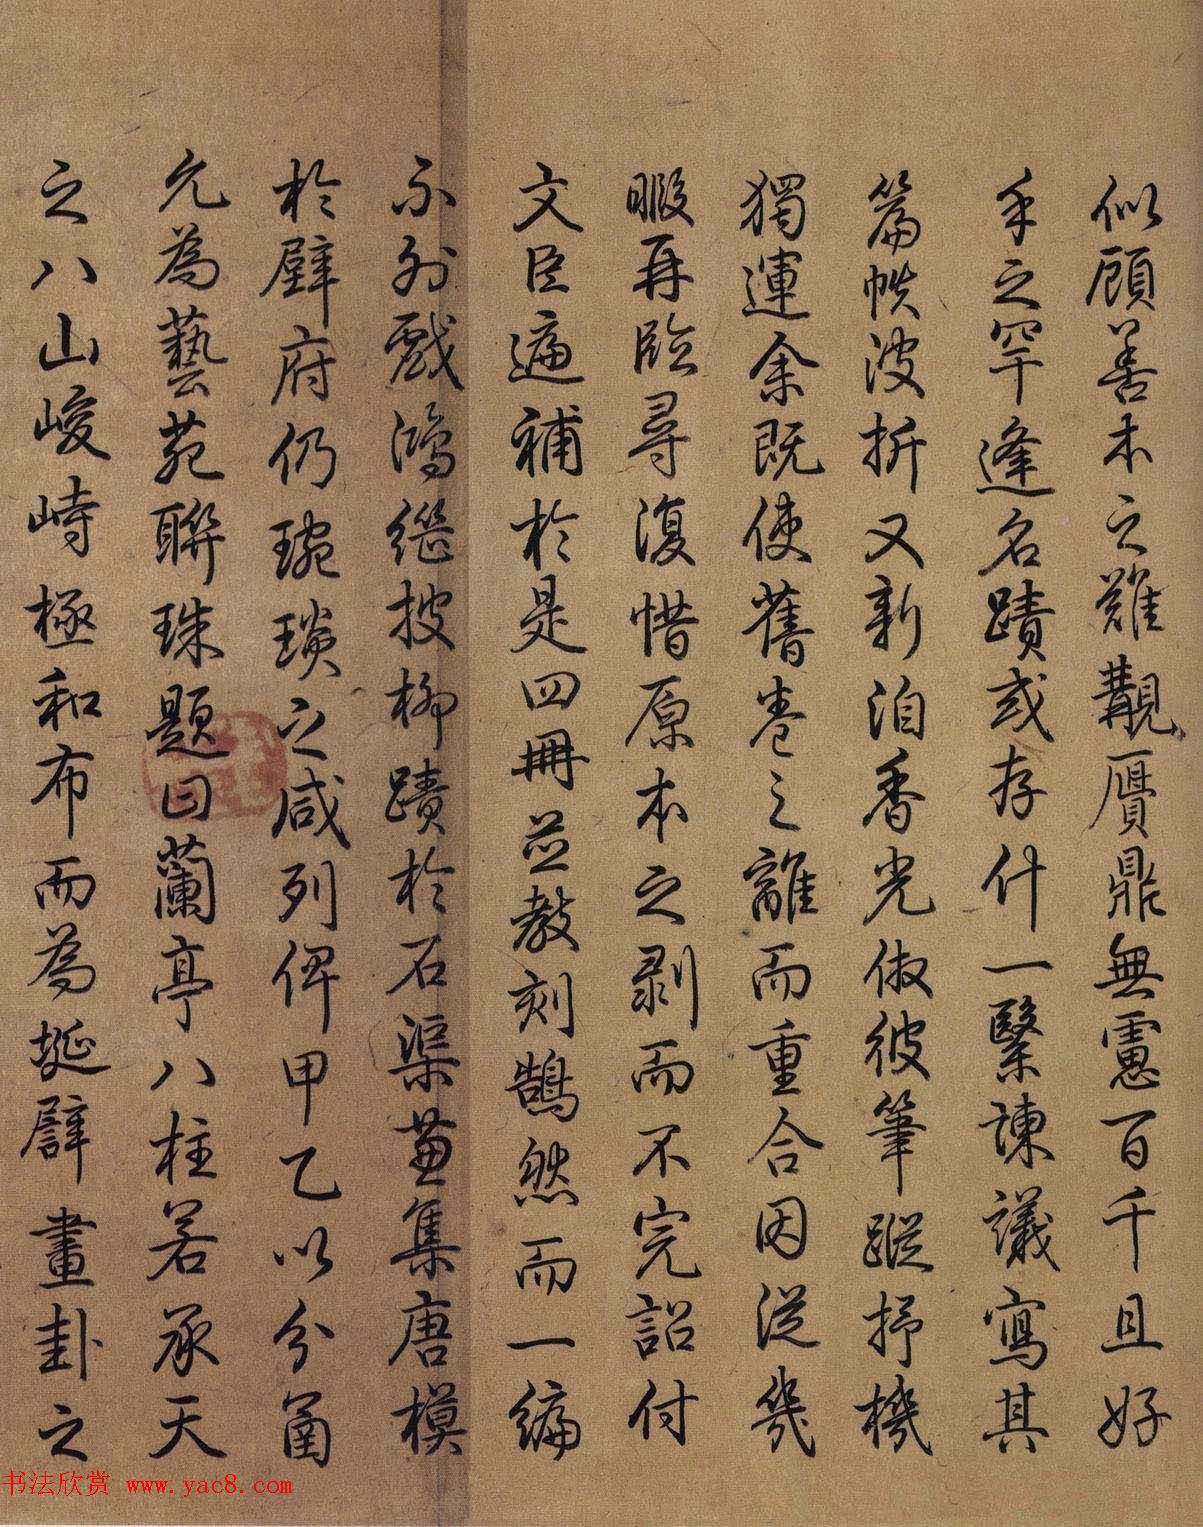 似顧善本之難覯贋鼎無慮百千且好
手之罕逢名蹟或存什一緊諫議寫其
篇帙波折又新洎香光倣彼筆蹤抒機
獨運余既使舊卷之離而重合因從幾
暇再臨尋復惜原本之剥而不完詔付
文臣遍補於是四冊並教刻鵠然而一編
不列戲鴻繼披柳蹟於石渠薈集唐模
於壁府仍琬琰之咸列俾甲乙以分函
允為藝苑聯珠題曰蘭亭八柱若承天
之八山峻峙極和布而為埏劈畫卦之
书法欣赏 www.yac8.com